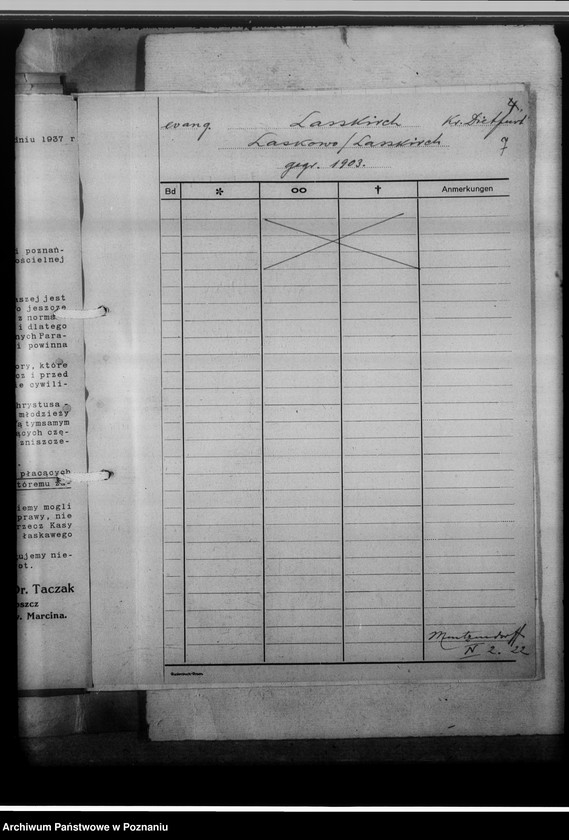 dniu 1937 r
i poznań-
ościelnej
aszej jest
o jeszcze
z norma
i dlatego
nych Para-
i powinna
ory, które
cz i przed
ie cywili-
hrystusa -
młodzieży
a tymsamym
ących czę-
zniszcze-
płacących
tóremu
iemy mogli
prawy, nie
rzecz Kasy
łaskawego
ujemy nie-
ot.
Dr. Taczak
oszcz
w. Marcina.
4.
evang. Lasskirch Kr. Dietfurt
Laskowo/Lasskirch 7
gegr. 1903.
Bd * ∞ † Anmerkungen
N 2. 22
Archiwum Państwowe w Poznaniu